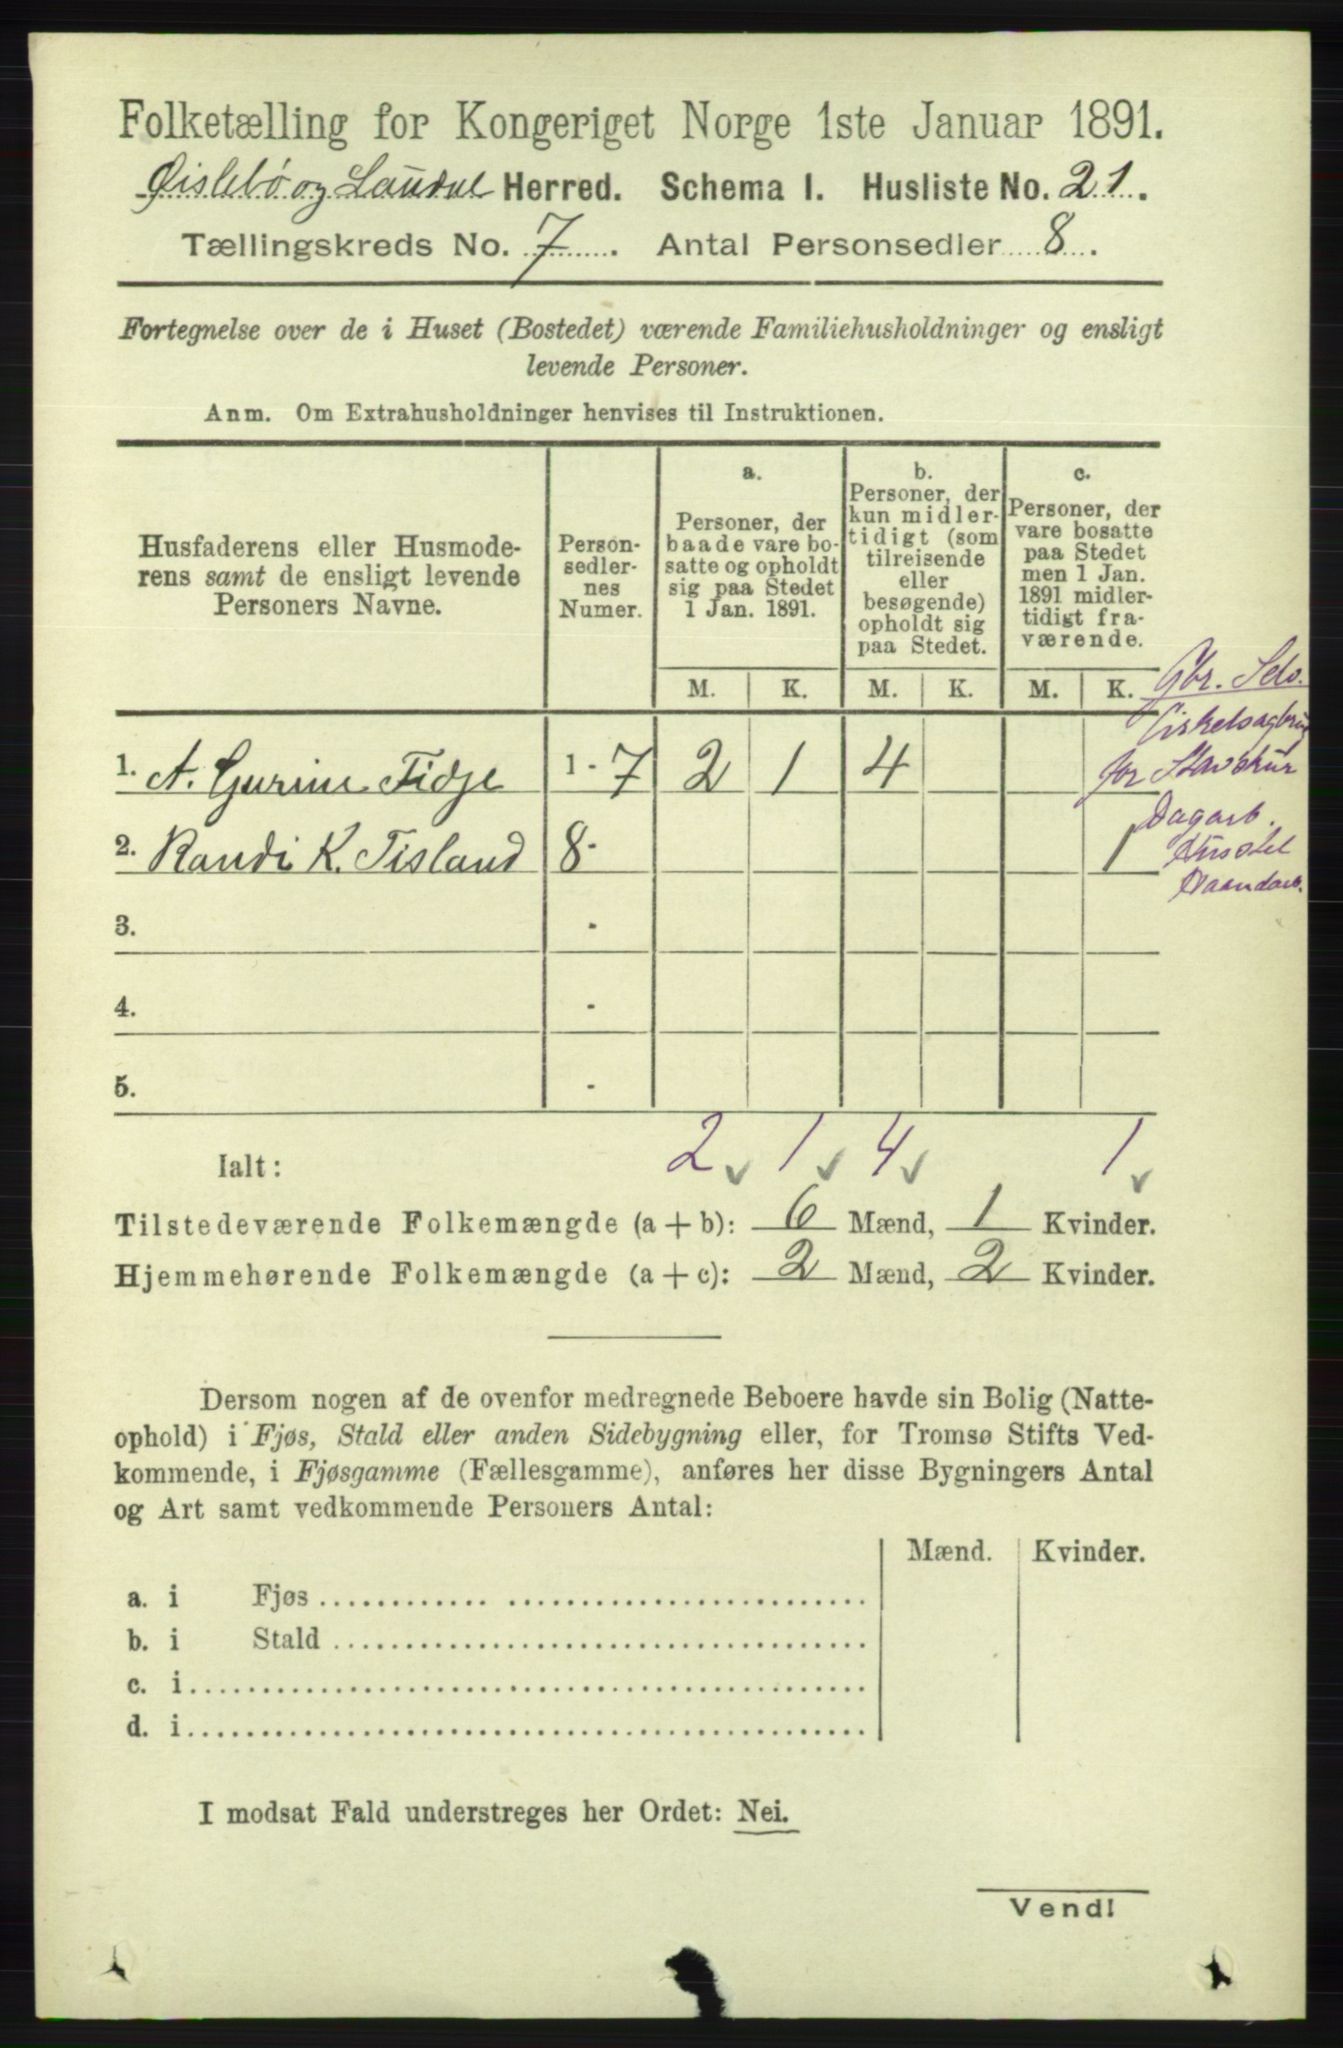 Folketælling for Kongeriget Norge 1ste Januar 1891.
Øislebö og Laudal Herred. Schema I. Husliste No. 21.
Tællingskreds No. 7. Antal Personsedler 8.
Fortegnelse over de i Huset (Bostedet) værende Familiehusholdninger og ensligt
levende Personer.
Anm. Om Extrahusholdninger henvises til Instruktionen.
Husfaderens eller Husmode-
rens samt de ensligt levende
Personers Navne.
Person-
sedler-
nes
Numer.
a.
Personer, der
baade vare bo-
satte og opholdt
sig paa Stedet
1 Jan. 1891.
b.
Personer, der
kun midler-
tidigt (som
tilreisende
eller
besøgende)
opholdt sig
paa Stedet.
c.
Personer, der
vare bosatte
paa Stedet
men 1 Jan.
1891 midler-
tidigt fra-
værende.
M. K. M. K. M. K.
Gbr. Selv.
1. A. Gurine Fidje 1 - 7 2 1 4
Dagarb.
2. Randi K. Tisland 8 - 1
Husstel
3. -
4. -
5. -
Ialt: 2 1 4 1
Tilstedeværende Folkemængde (a + b): 6 Mænd, 1 Kvinder.
Hjemmehørende Folkemængde (a + c): 2 Mænd, 2 Kvinder.
Dersom nogen af de ovenfor medregnede Beboere havde sin Bolig (Natte-
ophold) i Fjøs, Stald eller anden Sidebygning eller, for Tromsø Stifts Ved-
kommende, i Fjøsgamme (Fællesgamme), anføres her disse Bygningers Antal
og Art samt vedkommende Personers Antal:
Mænd. Kvinder.
a. i Fjøs
b. i Stald
c. i
d. i
I modsat Fald understreges her Ordet: Nei.
Vend!